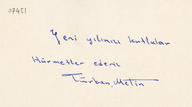 07451
Yeni yılınızı kutlular
Hürmetler ederiz
Türkan, Metin